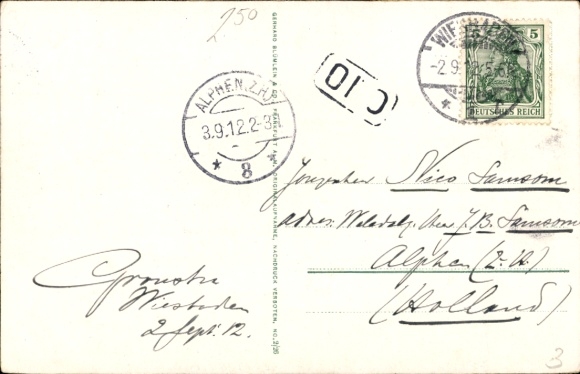 250
WIESBADEN
-2.9.12.5-6
5
DEUTSCHES REICH
ALPHEN (Z.H.)
3.9.12.2-3
* 8 *
C 10
GERHARD BLÜMLEIN & CO., FRANKFURT A.M. ORIGINALAUFNAHME, NACHDRUCK VERBOTEN. NO. 2/20
Jongeheer Nico Samsom
adres Weledelg. Heer J.B. Samsom
Alphen (Z.-H.)
(Holland)
Wiesbaden
2 Sept. 12.
3